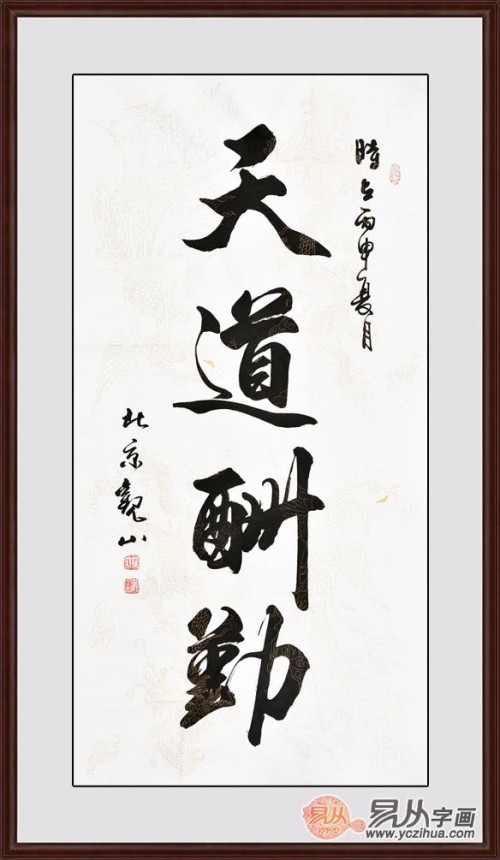 时在丙申夏月
天道酬勤
北京觀山
易从字画
www.yczihua.com